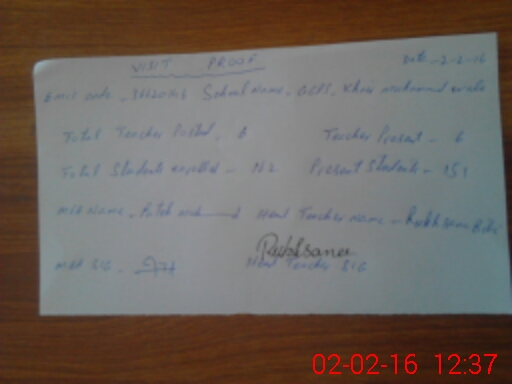 VISIT PROOF Date - 2-2-16
School Name - GGPS, Khair Muhammad
Total Teacher Posted - 8 Teacher Present - 6
Total Students enrolled - 162 Present Students - 151
MEA Name - Head Teacher name - Rukhsana Bibi
Rukhsana
MEA SIG - Head Teacher SIG
02-02-16 12:37